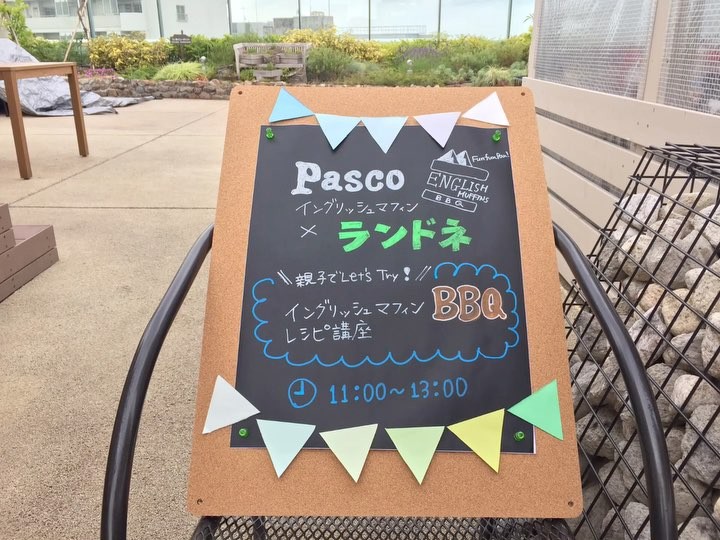 Pasco
Fun fun fun!
ENGLISH
MUFFINS
BBQ
イングリッシュマフィン
× ランドネ
\\ 親子でLet's Try! //
イングリッシュマフィン BBQ
レシピ講座
11:00～13:00